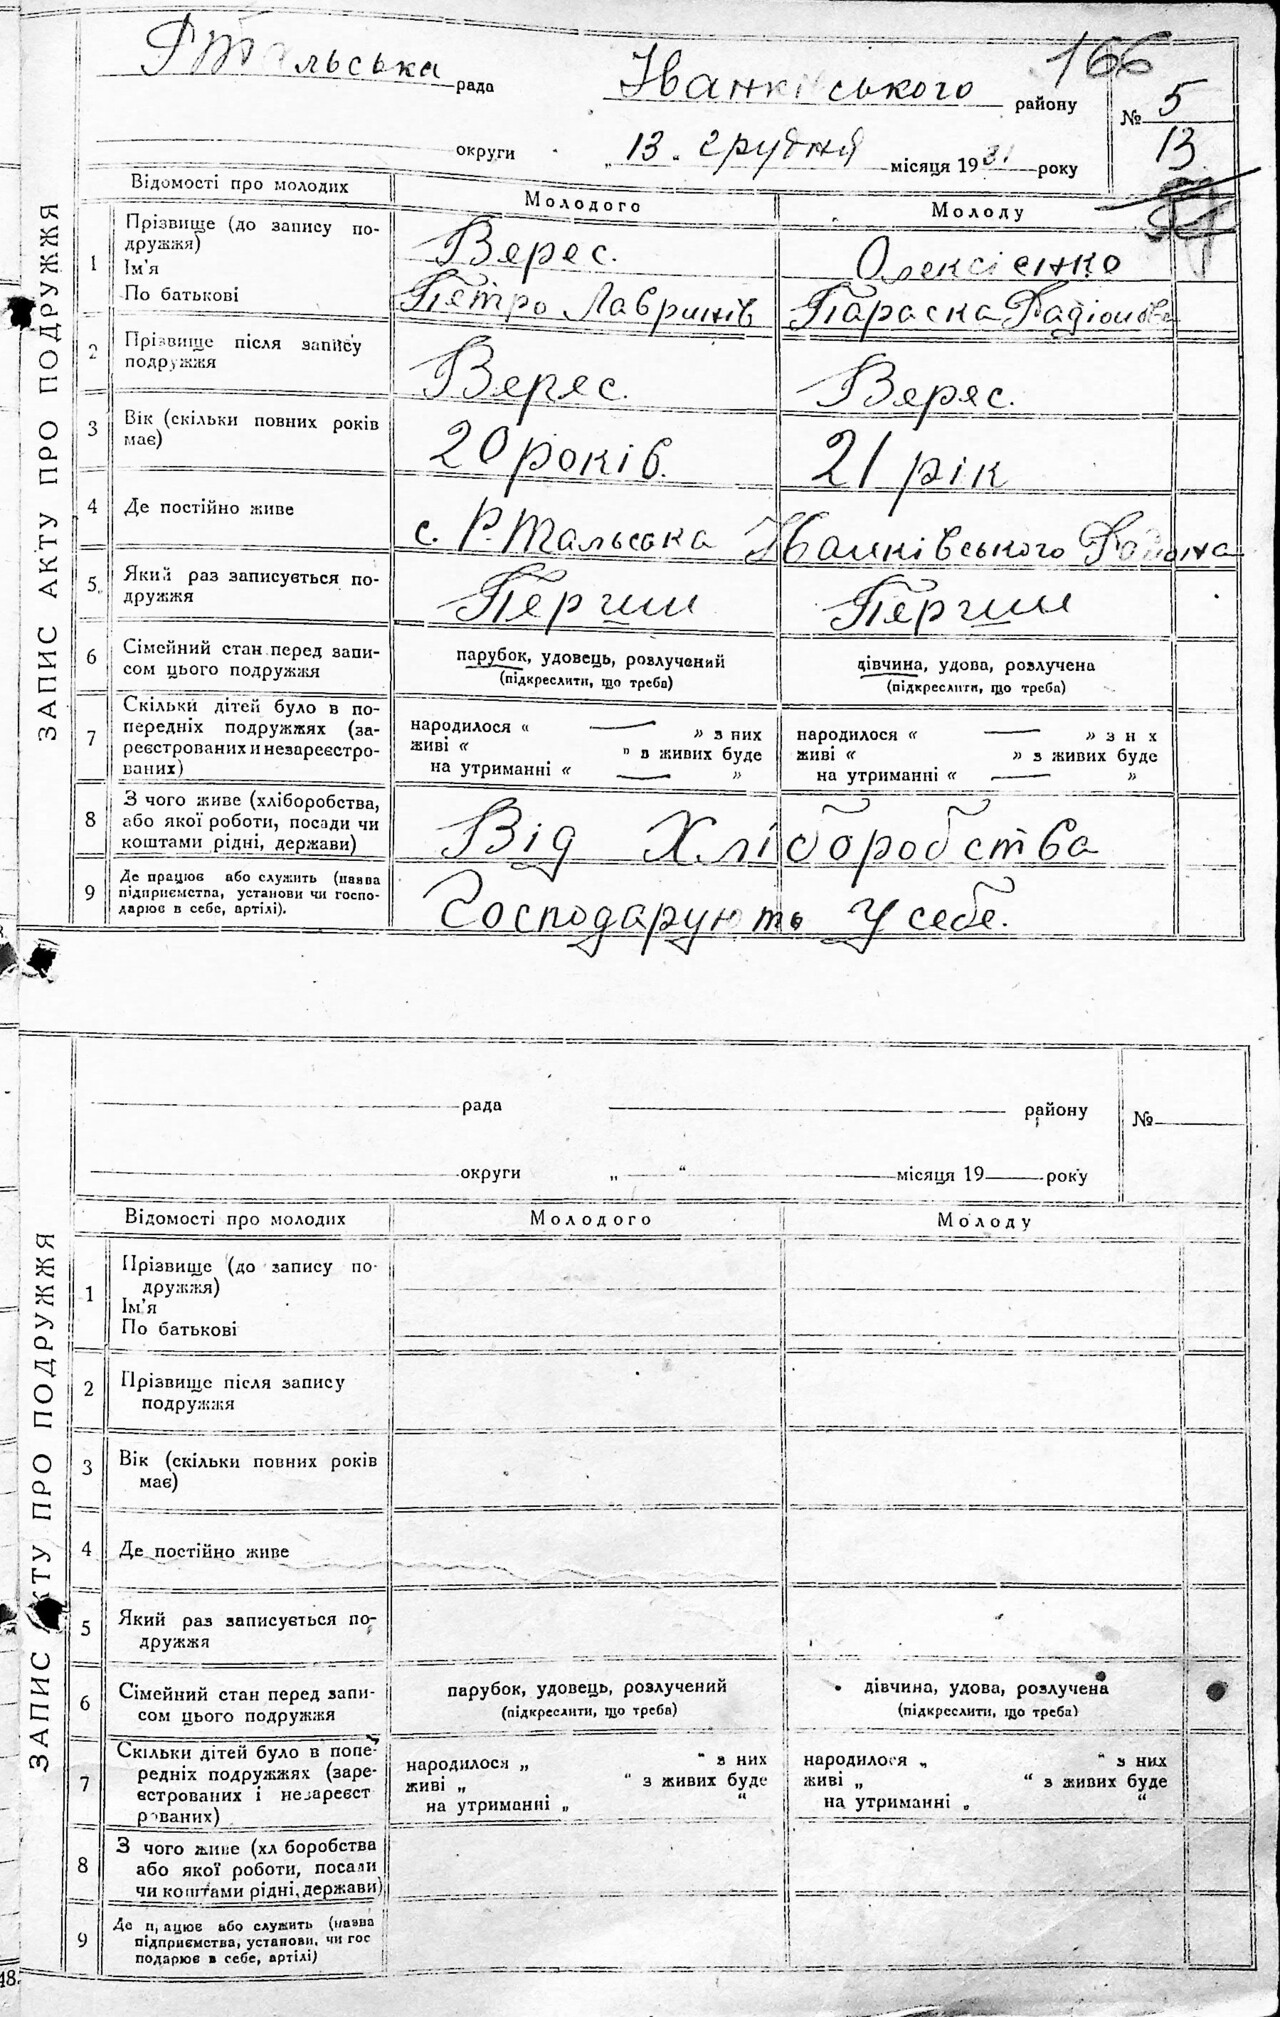 166
Р. Тальська рада Іванківського району № 5
13
округи „13„ грудня місяця 1931 року
ЗАПИС АКТУ ПРО ПОДРУЖЖЯ
Відомості про молодих Молодого Молоду
1 Прізвище (до запису по-
дружжя) Верес. Олексієнко
Ім'я
По батькові Петро Лавринів Параска Радіонова
2 Прізвище після запису
подружжя Верес. Верес.
3 Вік (скільки повних років
має) 20 років. 21 рік
4 Де постійно живе с. Р. Тальська Іванківського Району
5. Який раз записується по-
дружжя Перший Перший
6 Сімейний стан перед запи-
сом цього подружжя
парубок, удовець, розлучений
(підкреслити, що треба)
дівчина, удова, розлучена
(підкреслити, що треба)
7 Скільки дітей було в по-
передніх подружжях (за-
реєстрованих и незареєстро-
ваних)
народилося « — » з них
живі « » з живих буде
на утриманні « — »
народилося « — » з н х
живі « » з живих буде
на утриманні « — »
8 З чого живе (хліборобства,
або якої роботи, посади чи
коштами рідні, держави) Від Хліборобства
9 Де працює або служить (назва
підприємства, установи чи госпо-
дарює в себе, артілі). Господарують У себе.
рада району №
округи „ “ місяця 19 року
ЗАПИС АКТУ ПРО ПОДРУЖЖЯ
Відомості про молодих Молодого Молоду
1 Прізвище (до запису по-
дружжя)
Ім'я
По батькові
2 Прізвище після запису
подружжя
3 Вік (скільки повних років
має)
4 Де постійно живе
5 Який раз записується по-
дружжя
6 Сімейний стан перед запи-
сом цього подружжя
парубок, удовець, розлучений
(підкреслити, що треба)
дівчина, удова, розлучена
(підкреслити, що треба)
7 Скільки дітей було в попе-
редніх подружжях (заре-
єстрованих і незареєст
рованих)
народилося „ “ з них
живі „ “ з живих буде
на утриманні „ “
народилося „ “ з них
живі „ “ з живих буде
на утриманні „ “
8 З чого живе (хл боробства
або якої роботи, посади
чи коштами рідні, держави)
9 Де п, ацює або служить (назва
підприємства, установи, чи гос
подарює в себе, артілі)
48.